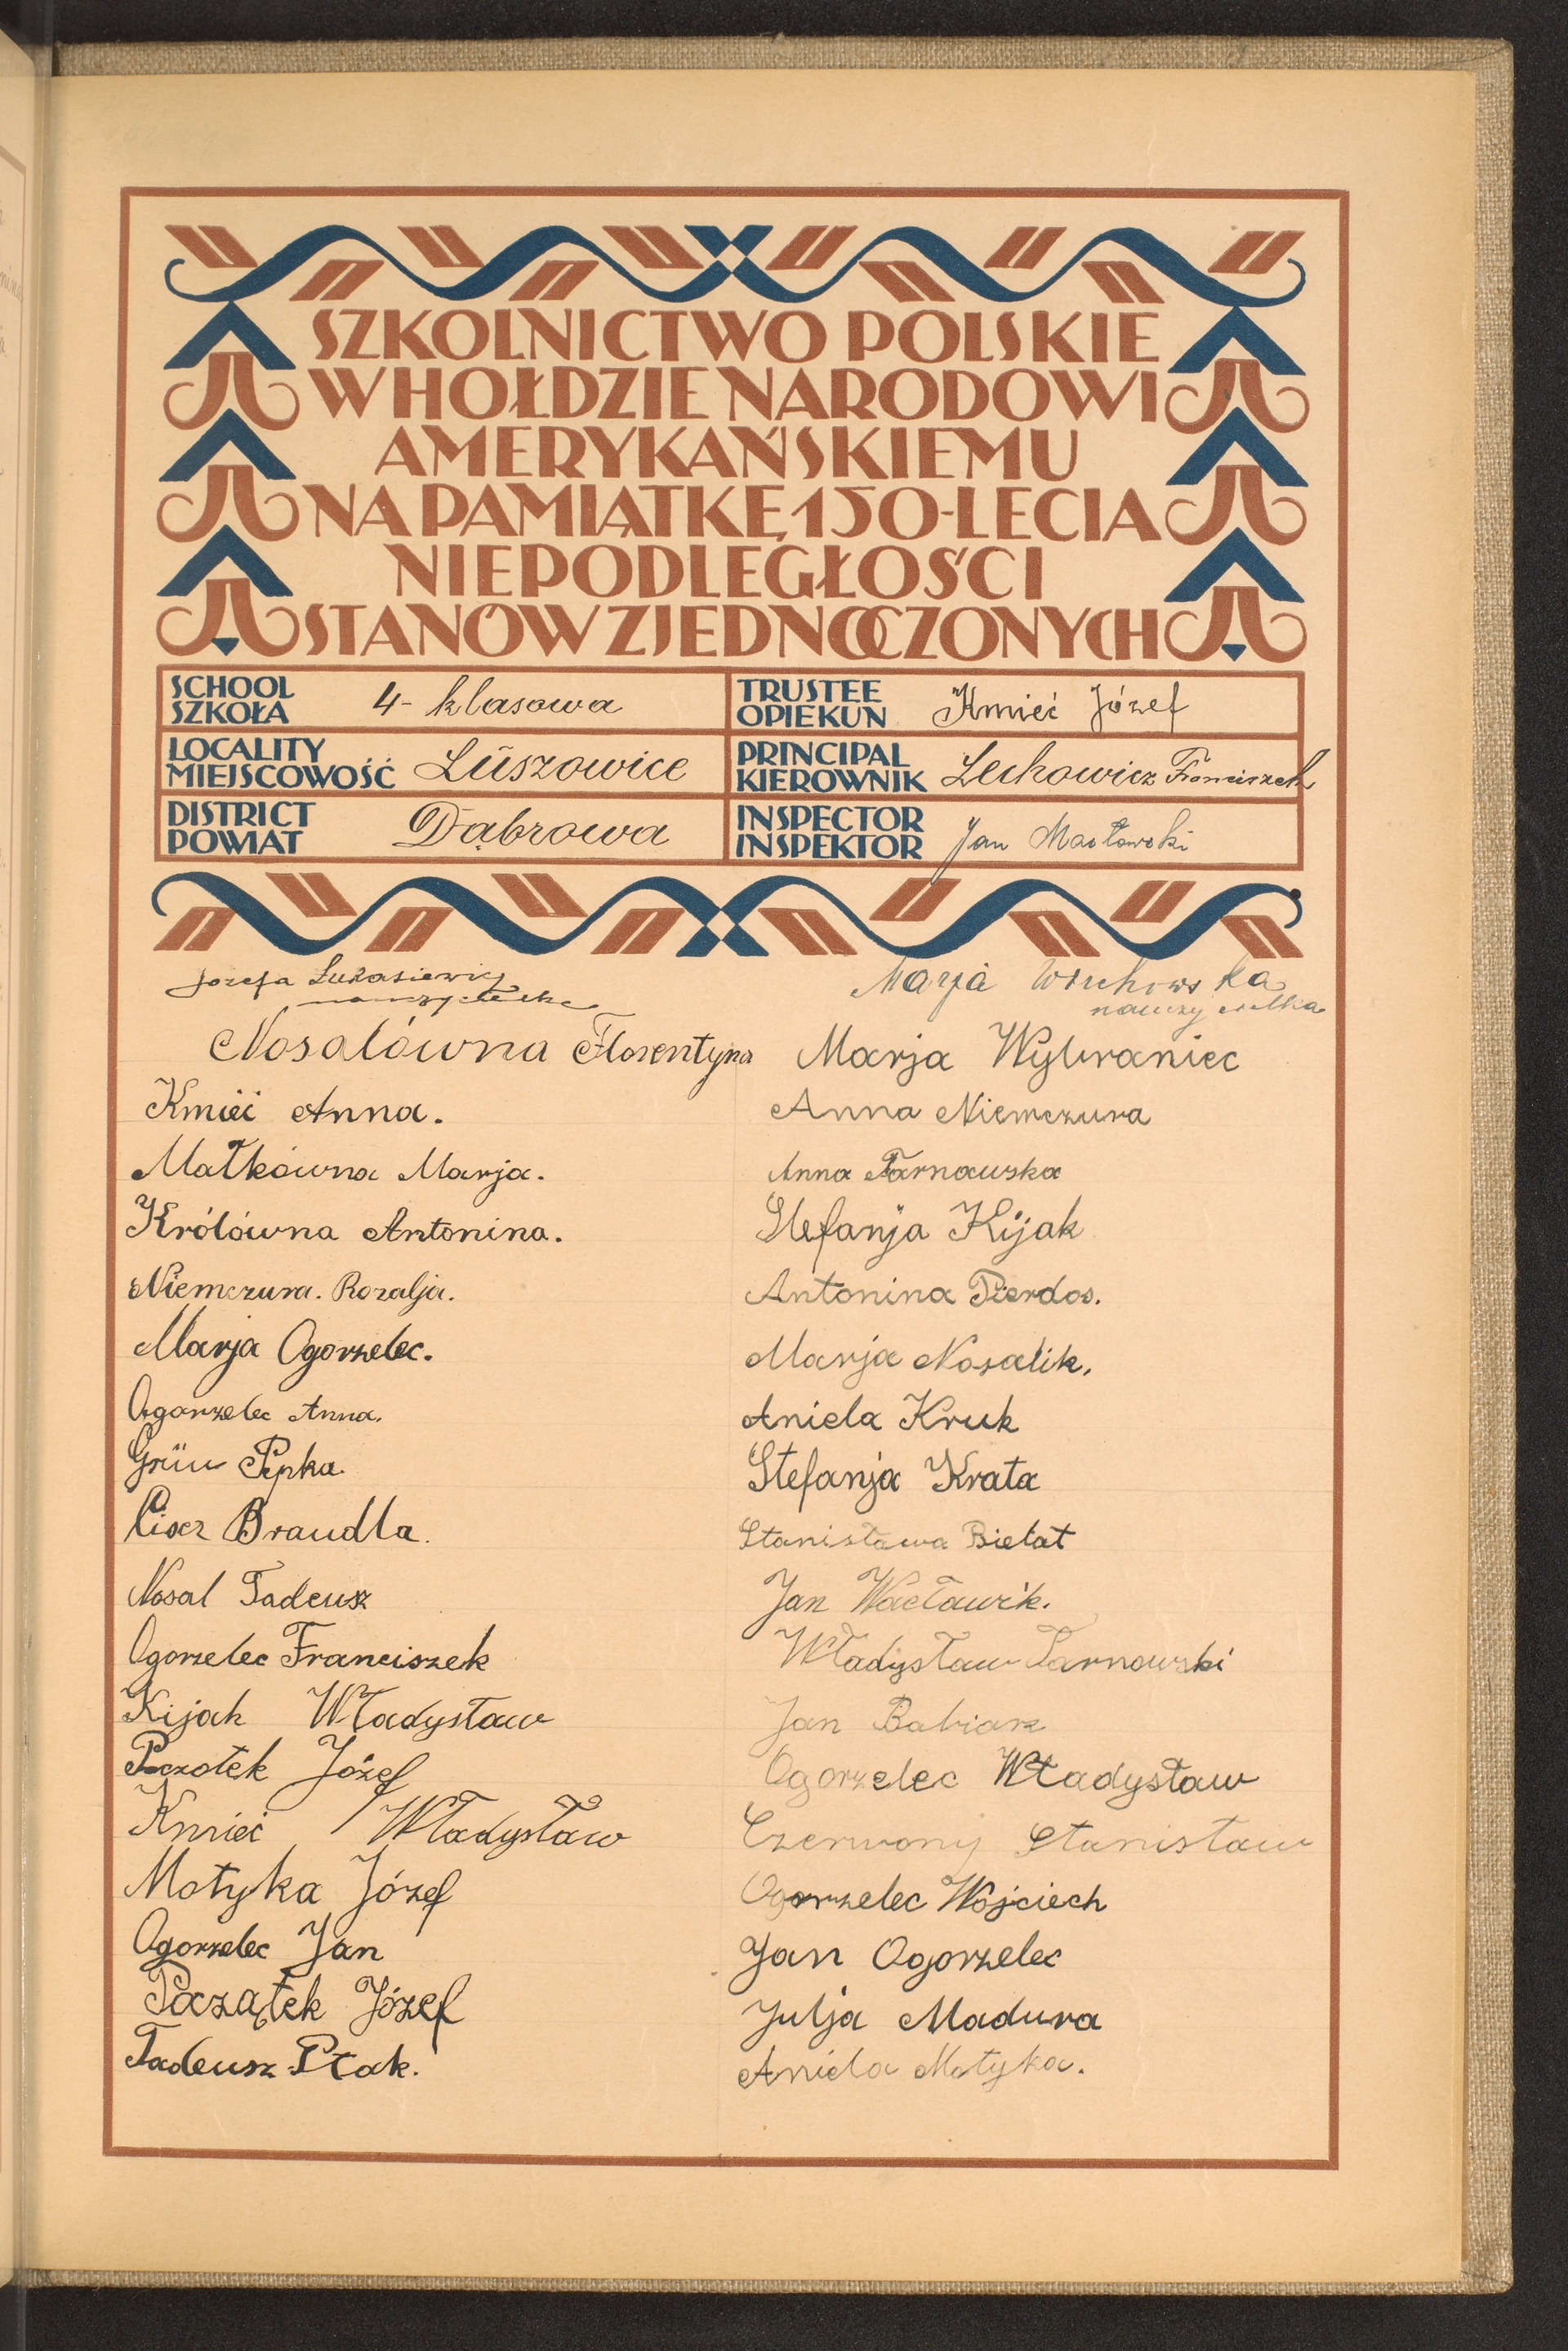 SZKOLNICTWO POLSKIE
W HOŁDZIE NARODOWI
AMERYKAŃSKIEMU
NA PAMIĄTKĘ 150-LECIA
NIEPODLEGŁOŚCI
STANÓW ZJEDNOCZONYCH
SCHOOL
SZKOŁA 4-klasowa
TRUSTEE
OPIEKUN Kmieć Józef
LOCALITY
MIEJSCOWOŚĆ Luszowice
PRINCIPAL
KIEROWNIK Lechowicz Franciszek
DISTRICT
POWIAT Dąbrowa
INSPECTOR
INSPEKTOR Jan Masłowski
Józefa Łukasiewicz
nauczycielka
Nosalówna Florentyna
Kmieć Anna.
Małkówna Marja.
Królówna Antonina.
Niemczura. Rozalja.
Marja Ogorzelec.
Ogorzelec Anna.
Grün Pepka.
Braudla.
Nosal Tadeusz
Ogorzelec Franciszek
Kijak Władysław
Józef
Kmieć Władysław
Motyka Józef
Ogorzelec Jan
Początek Józef
Tadeusz Ptak.
Marja
nauczycielka
Marja Wybraniec
Anna Niemczura
Anna Tarnawska
Stefanja Kijak
Antonina Pierdos.
Marja Nosalik.
Aniela Kruk
Stefanja Krata
Stanisława Bielat
Jan Wacławik.
Władysław Tarnowski
Jan Babiarz
Ogorzelec Władysław
Czerwony Stanisław
Ogorzelec Wojciech
Jan Ogorzelec
Julja Madura
Aniela Motyka.